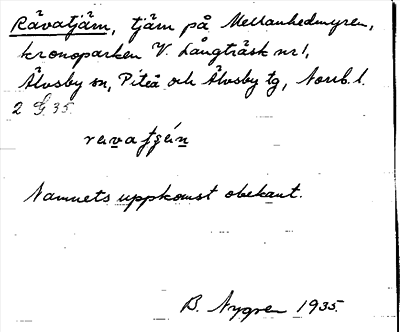 Rävatjärn, tjärn på Mellanhedmyren,
kronoparken V. Långträsk nr 1,
Älvsby sn, Piteå och Älvsby tg, Norrb. l.
2 G. 35.
Namnets uppkomst obekant.
B. Nygren 1935.